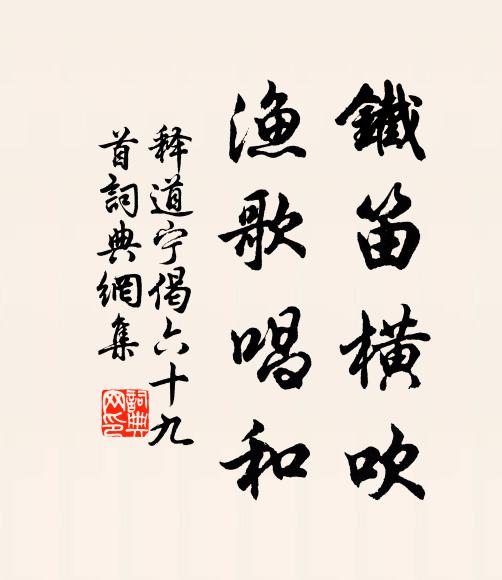 鐵笛橫吹
漁歌唱和
释道宁偈六十九
首詞典網集
詞典
网印